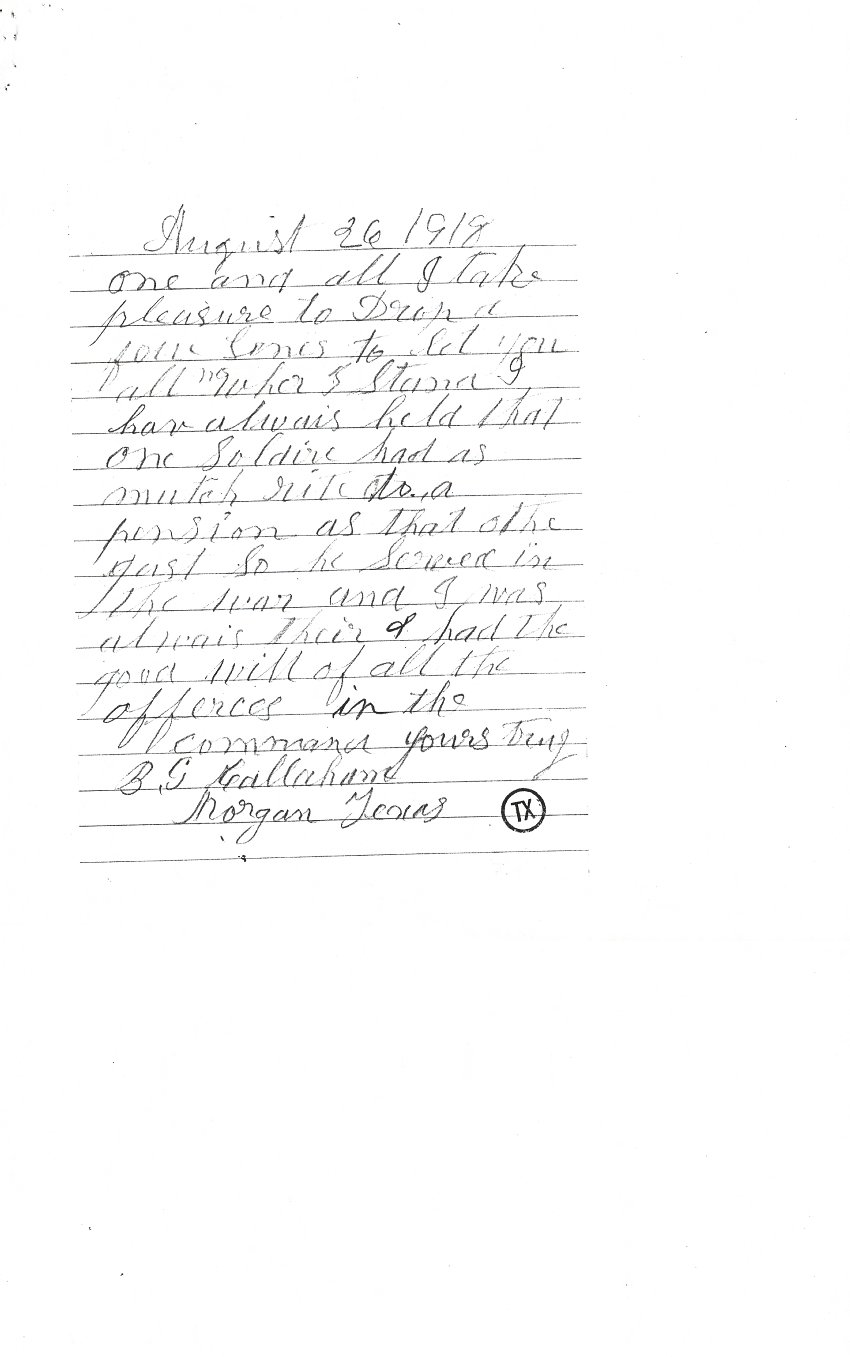 August 26 1918
one and all I take
pleasure to Drop a
fou lines to let you
all no wher I Stand I
hav alwais held that
one Soldire had as
mutch rite to a
pension as that othe
gast So he Served in
the war and I was
alwais their & had the
good will of all the
offerces in the
command yours truy
B G Kallaham
Morgan Texas TX